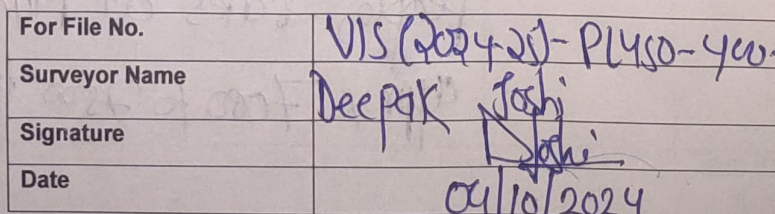 For File No. VIS (2024-25)-PL450-400-
Surveyor Name Deepak Joshi
Signature DJoshi
Date 04/10/2024